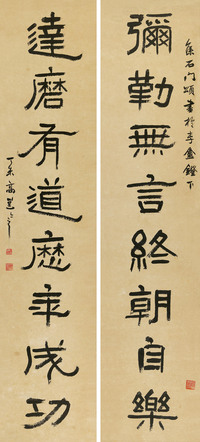 集石門頌書於李盦鐙下
彌勒無言終朝自樂
達磨有道歷年成功
丁未高邕之